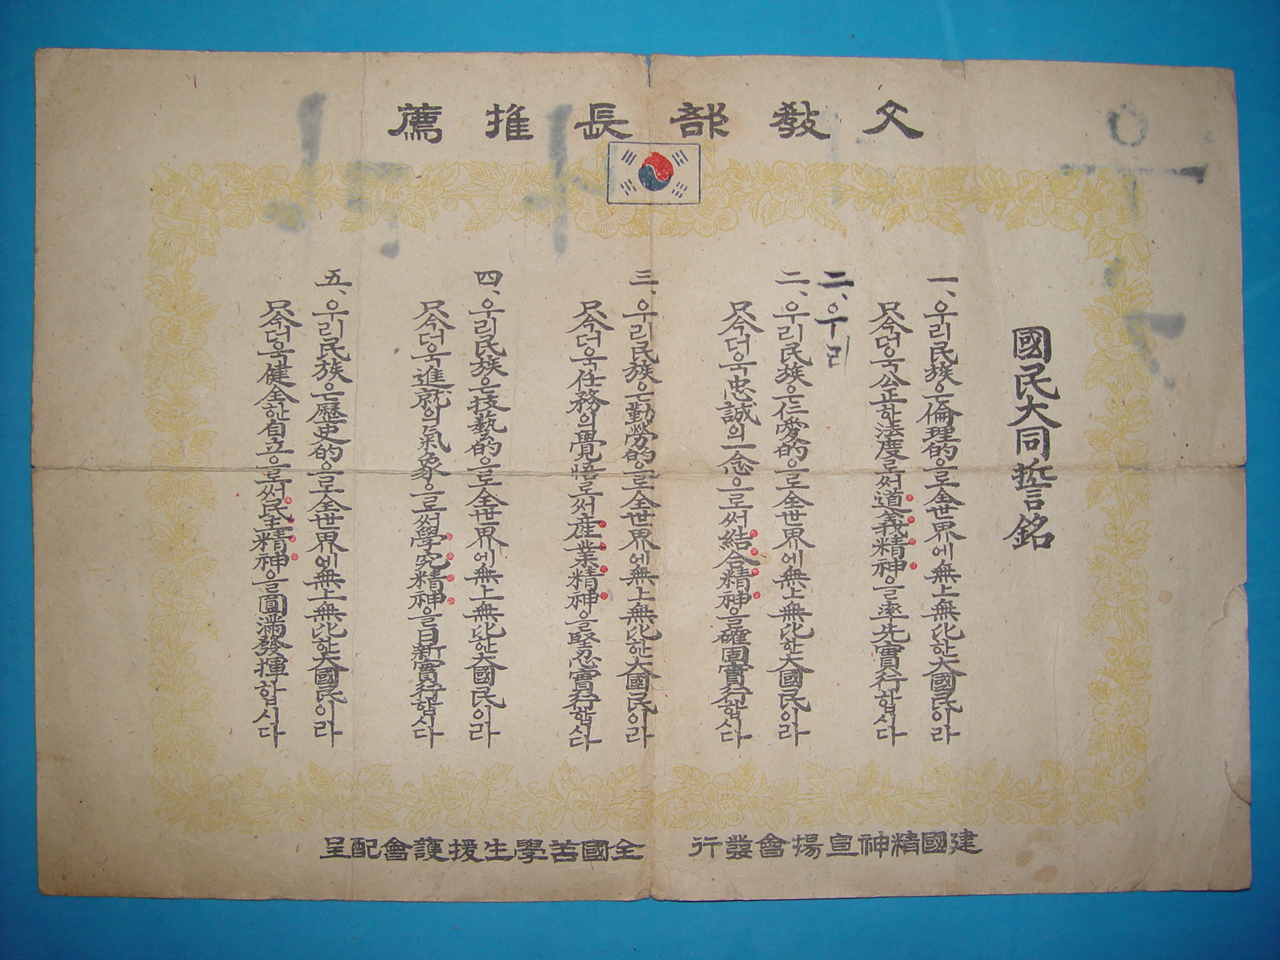 文敎部長推薦
國民大同誓銘
一、우리民族은倫理的으로全世界에無上無比한大國民이라
只今더욱公正한法度로써道義精神을率先實行합시다
二、우리
二、우리民族은仁愛的으로全世界에無上無比한大國民이라
只今더욱忠誠의一念으로써結合精神을確固實行합시다
三、우리民族은勤勞的으로全世界에無上無比한大國民이라
只今더욱任務의覺悟로써産業精神을堅忍實行합시다
四、우리民族은技藝的으로全世界에無上無比한大國民이라
只今더욱進就의氣象으로써學究精神을日新實行합시다
五、우리民族은歷史的으로全世界에無上無比한大國民이라
只今더욱健全한自立으로써民主精神을圓滿發揮합시다
建國精神宣揚會發行
全國苦學生援護會配呈